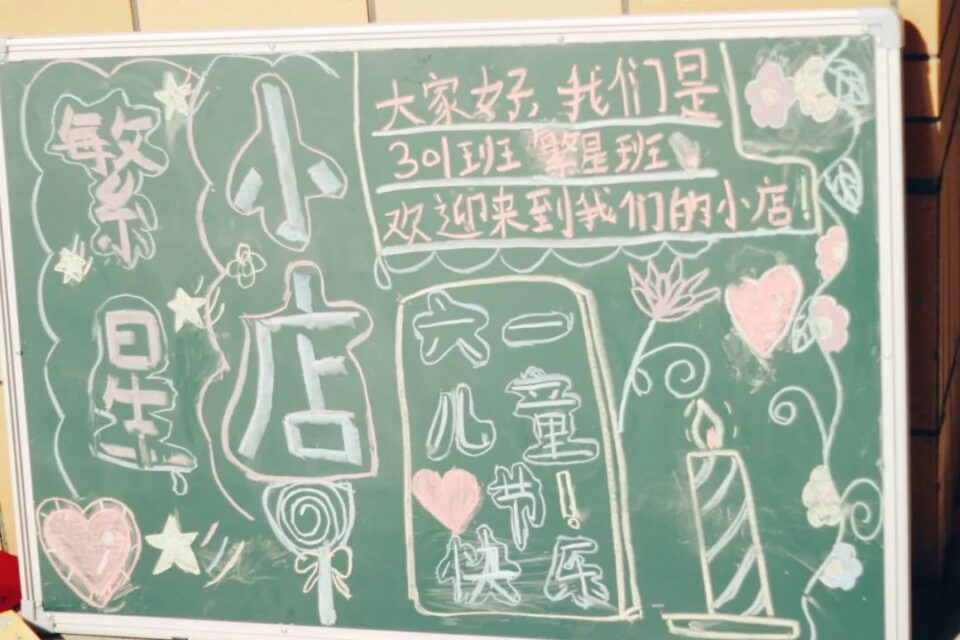 繁星
小店
大家好，我们是
301班 繁星班，
欢迎来到我们的小店！
六一
儿童
节！
快乐